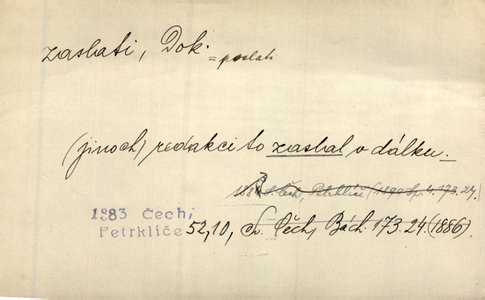 zaslati, Dok. = poslati
(jinoch) redakci to zaslal v dálku.
173.24.
1883 Čech,
Petrklíče 52,10, Sv. Čech, Bách. 173.24 (1886).